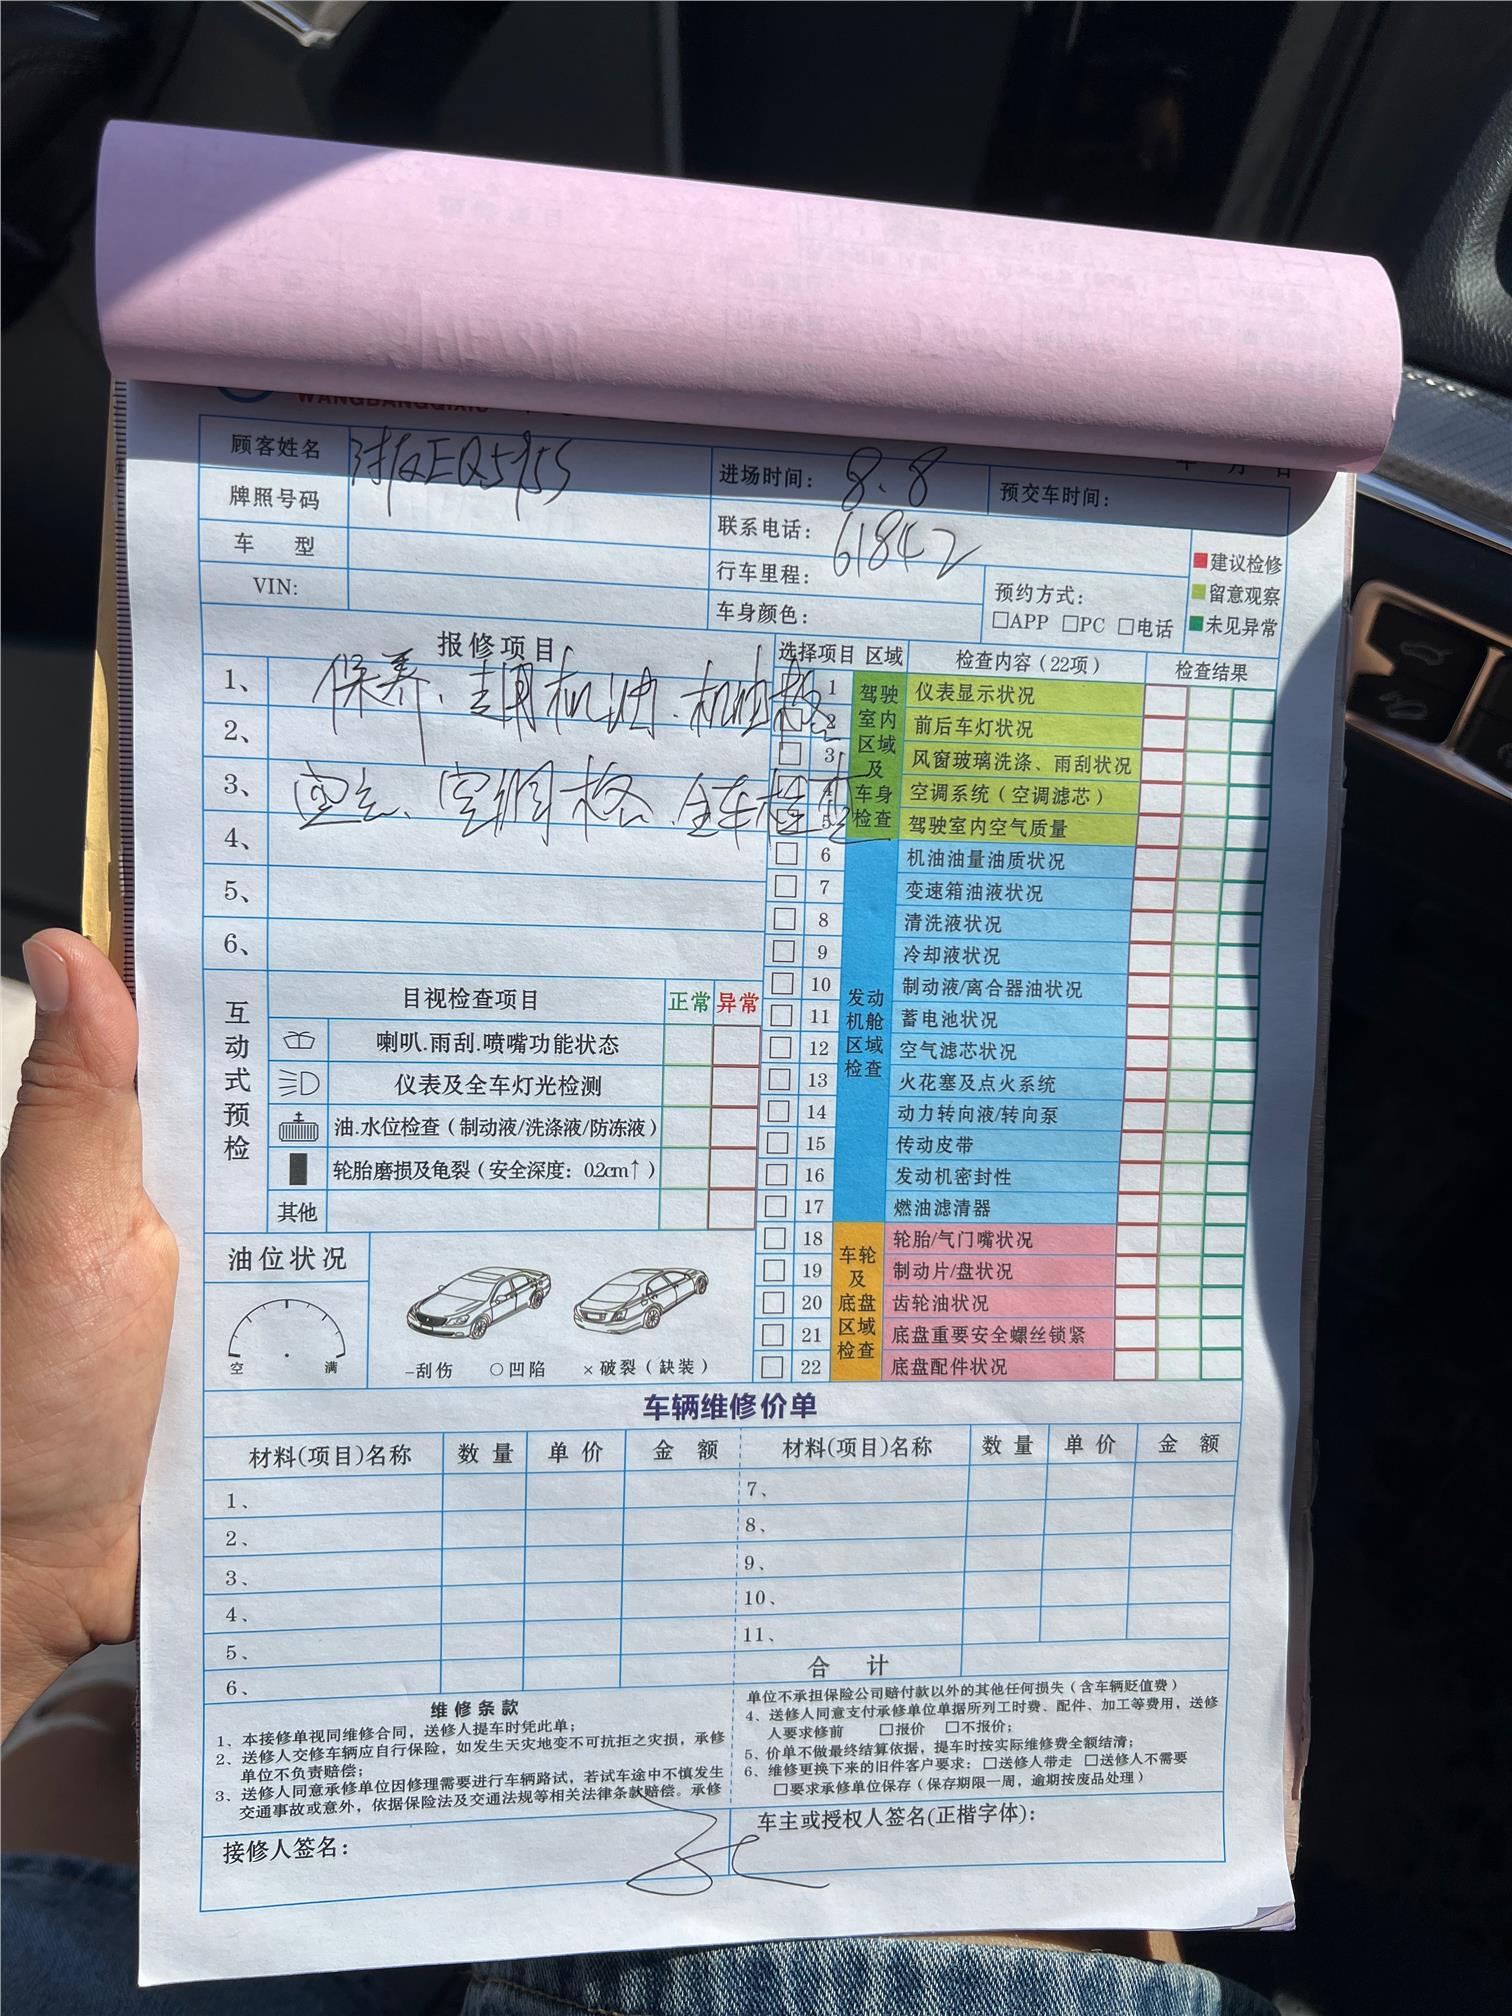 WANGBANGQIXIU
年 月 日
顾客姓名 EQ595S 进场时间: 8.8 预交车时间:
牌照号码 联系电话:
车 型 行车里程: 61842
VIN: 车身颜色: 预约方式:
□APP □PC □电话
建议检修
留意观察
未见异常
报修项目
1、 保养、机油、机油格
2、
3、 空调格、全车检查
4、
5、
6、
选择项目 区域 检查内容（22项） 检查结果
驾驶室内区域及车身检查
1 仪表显示状况
2 前后车灯状况
3 风窗玻璃洗涤、雨刮状况
空调系统（空调滤芯）
5 驾驶室内空气质量
发动机舱区域检查
6 机油油量油质状况
7 变速箱油液状况
8 清洗液状况
9 冷却液状况
10 制动液/离合器油状况
11 蓄电池状况
12 空气滤芯状况
13 火花塞及点火系统
14 动力转向液/转向泵
15 传动皮带
16 发动机密封性
17 燃油滤清器
车轮及底盘区域检查
18 轮胎/气门嘴状况
19 制动片/盘状况
20 齿轮油状况
21 底盘重要安全螺丝锁紧
22 底盘配件状况
互动式预检
目视检查项目 正常 异常
喇叭.雨刮.喷嘴功能状态
仪表及全车灯光检测
油.水位检查（制动液/洗涤液/防冻液）
轮胎磨损及龟裂（安全深度：0.2cm↑）
其他
油位状况
空 满
–刮伤 ○凹陷 ×破裂（缺装）
车辆维修价单
材料(项目)名称 数量 单价 金额 材料(项目)名称 数量 单价 金额
1、 7、
2、 8、
3、 9、
4、 10、
5、 11、
6、 合 计
维修条款
1、本接修单视同维修合同，送修人提车时凭此单；
2、送修人交修车辆应自行保险，如发生天灾地变不可抗拒之灾损，承修
单位不负责赔偿；
3、送修人同意承修单位因修理需要进行车辆路试，若试车途中不慎发生
交通事故或意外，依据保险法及交通法规等相关法律条款赔偿。承修
单位不承担保险公司赔付款以外的其他任何损失（含车辆贬值费）
4、送修人同意支付承修单位单据所列工时费、配件、加工等费用，送修
人要求修前 □报价 □不报价；
5、价单不做最终结算依据，提车时按实际维修费全额结清；
6、维修更换下来的旧件客户要求：□送修人带走 □送修人不需要
□要求承修单位保存（保存期限一周，逾期按废品处理）
接修人签名：
车主或授权人签名(正楷字体)：